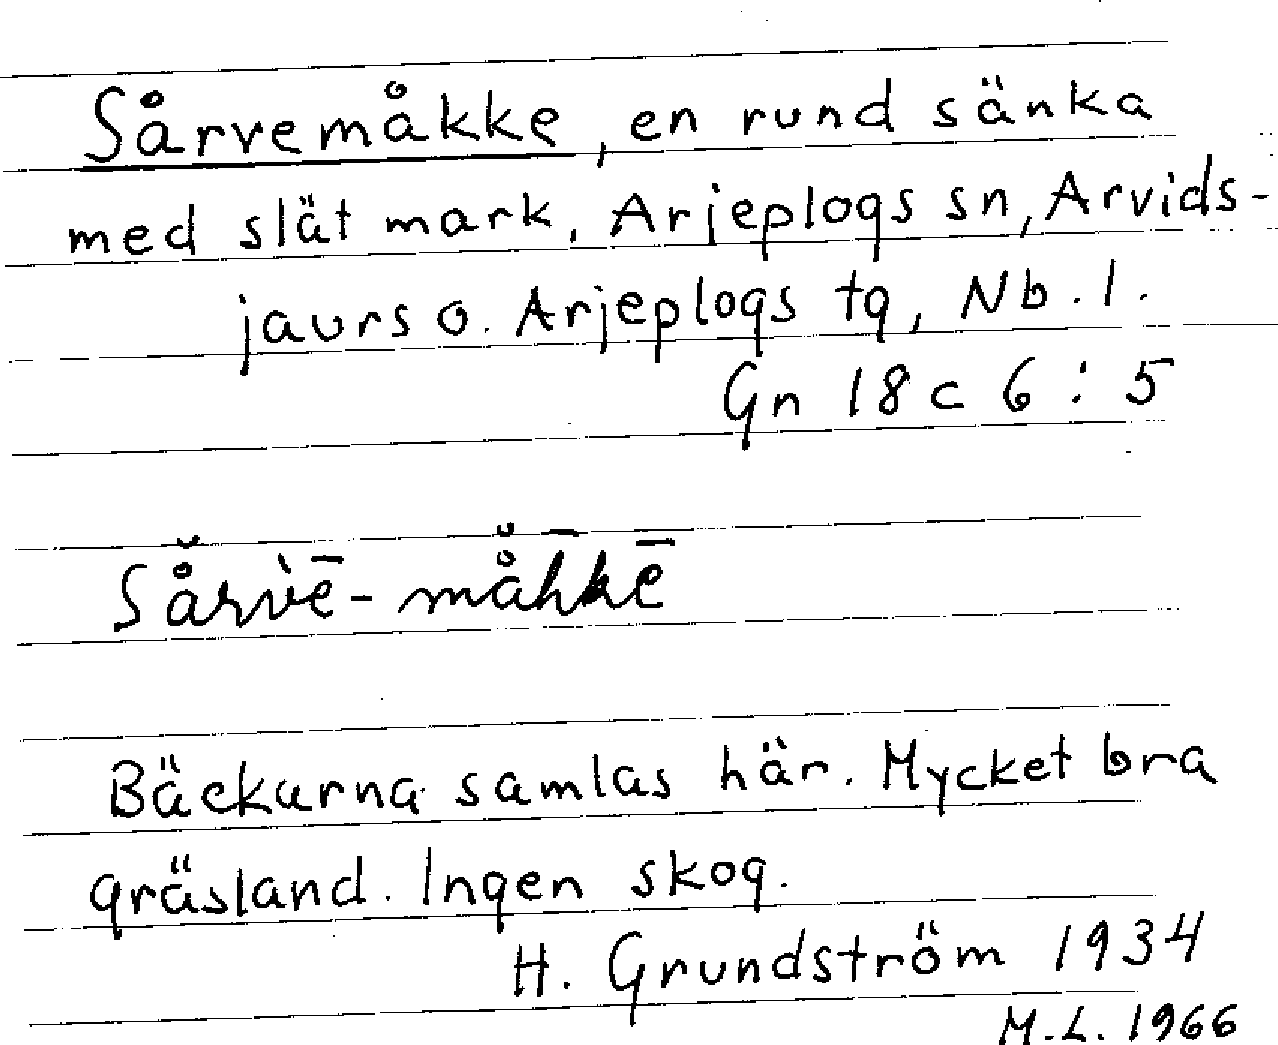 Sårvemåkke, en rund sänka
med slät mark, Arjeplogs sn, Arvids-
jaurs o. Arjeplogs tg, Nb. l.
Gn 18 c 6 : 5
Så̆rv̀ē-må̆h̄kē
Bäckarna samlas här. Mycket bra
gräsland. Ingen skog.
H. Grundström 1934
M.L. 1966